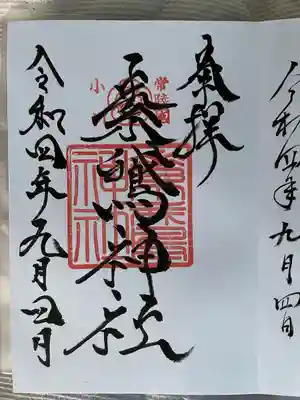 令和四年九月四日
奉拝
常陸国
小
素鵞神社
令和四年九月四日